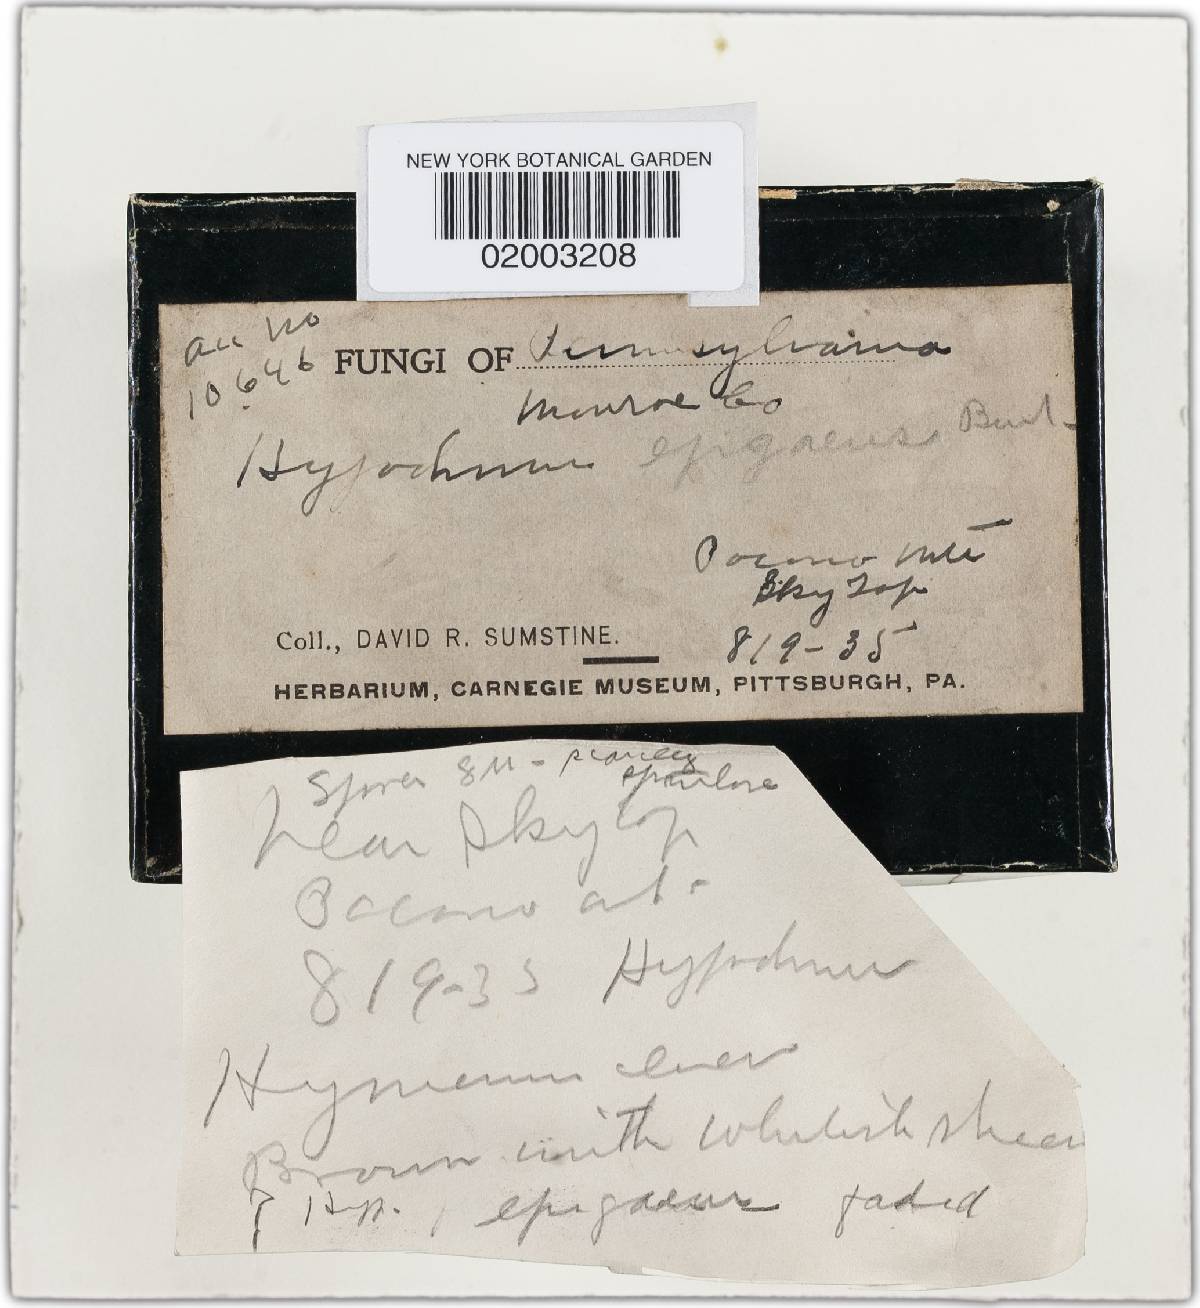 NEW YORK BOTANICAL GARDEN
02003208
acc no
10646
FUNGI OF Pennsylvania
Monroe Co
Hypochnus epigaeus Burt-
Pocono Mts
Sky Top
Coll., DAVID R. SUMSTINE.
8/9-35
HERBARIUM, CARNEGIE MUSEUM, PITTSBURGH, PA.
Spores 8µ -
Near Sky Top
Pocono
8/9-35 Hypochnus
Brown with whitish sheen
? Hyp. epigaeus faded